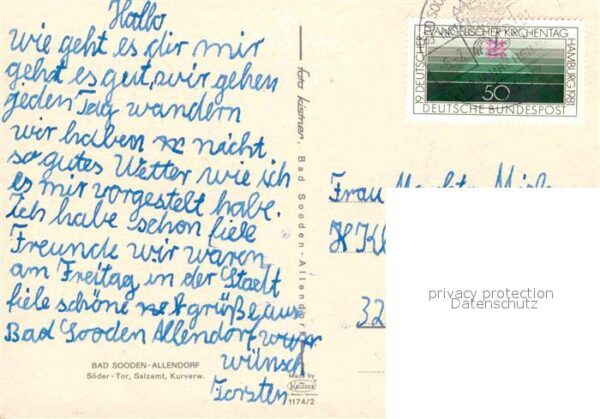 Hallo
wie geht es dir mir
gehd es gut, wir gehen
jeden Tag wandern
wir haben nacht
so gutes Wetter wie ich
es mir vorgestelt habe.
Ich habe schon fiele
Freunde wir waren
am Freitag in der Stadt
fiele schöne grüße aus
Bad Sooden Allendorf
wünsch
Torsten
BAD SOODEN-ALLENDORF
Söder-Tor, Salzamt, Kurverw.
foto küstner, Bad Sooden-Allendorf
Made by
KRÜGER
1174/2
19. DEUTSCHER EVANGELISCHER KIRCHENTAG HAMBURG 1981
50
DEUTSCHE BUNDESPOST
BAD SOO
Frau
32
privacy protection
Datenschutz